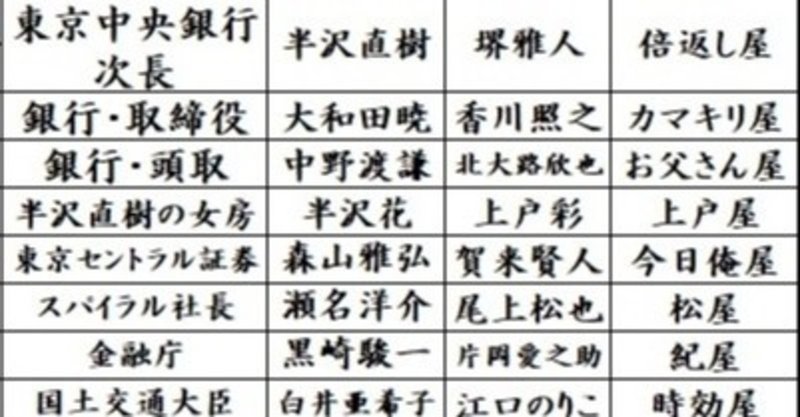 東京中央銀行次長 半沢直樹 堺雅人 倍返し屋
銀行・取締役 大和田暁 香川照之 カマキリ屋
銀行・頭取 中野渡謙 北大路欣也 お父さん屋
半沢直樹の女房 半沢花 上戸彩 上戸屋
東京セントラル証券 森山雅弘 賀来賢人 今日俺屋
スパイラル社長 瀬名洋介 尾上松也 松屋
金融庁 黒崎駿一 片岡愛之助 紀屋
国土交通大臣 白井亜希子 江口のりこ 時効屋